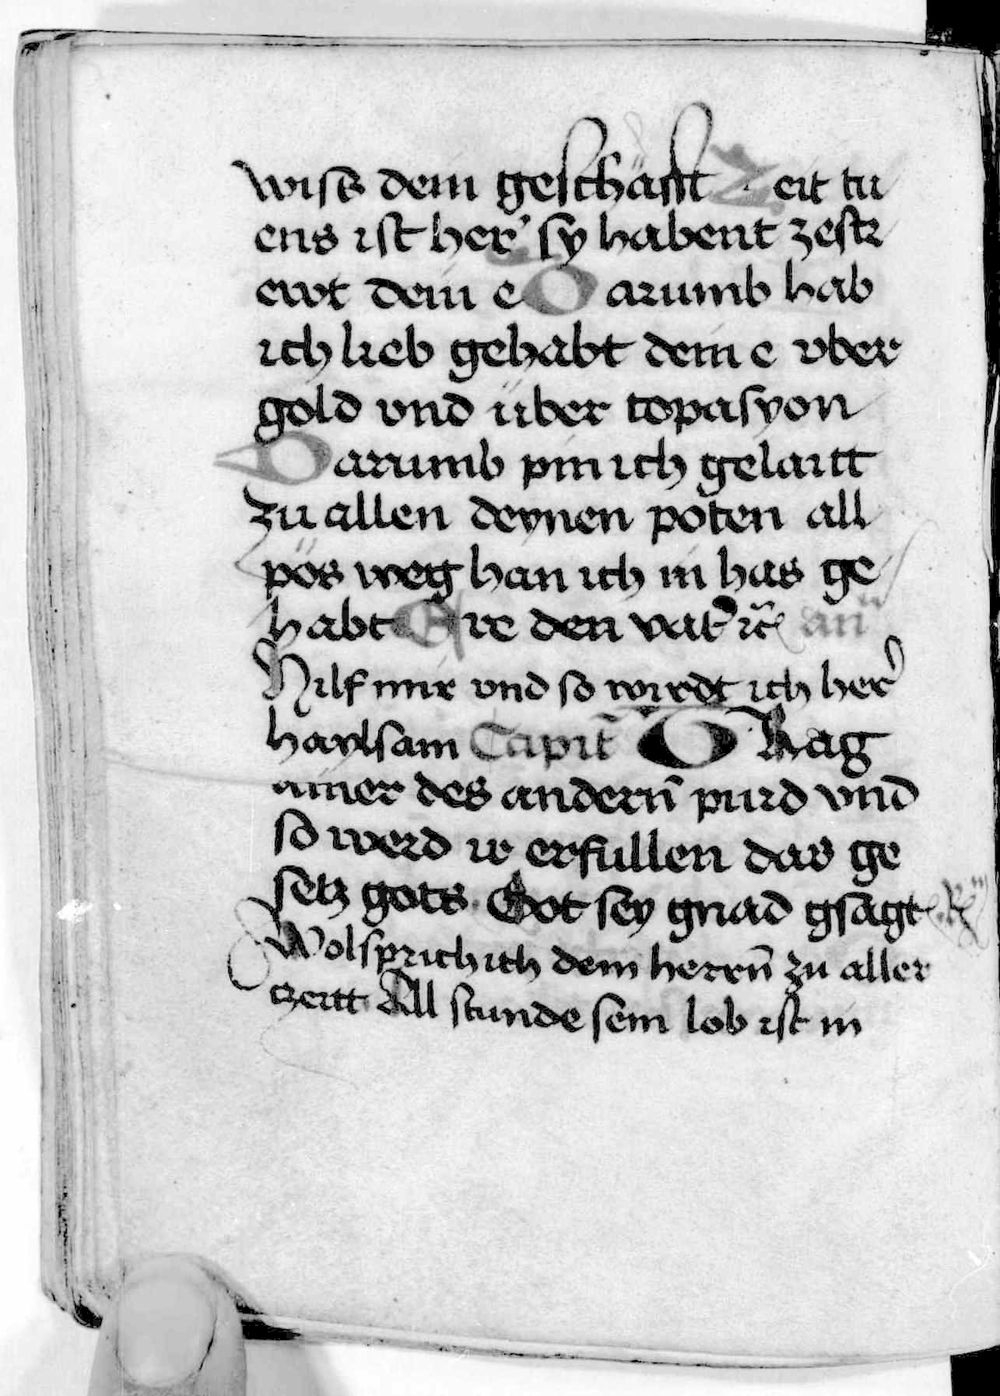 wiss dein geschäfft Zeit tu
ens ist her' sy habent zestr
ewt dein e Darumb hab
ich lieb gehabt dein e vber
gold vnd über topasyon
Darumb pin ich gelaitt
zu allen deynen poten all
pös weg han ich in has ge
habt Ere den vat' rc̃ an̄
Hilf mir vnd so wirdt ich her'
haylsam Capit̄ Trag
ainer des andern̄ purd vnd
so werd ir erfullen das ge
setz gots Got sey gnad gsagt
Wol sprich ich dem herrn̄ zu aller
tzeitt All stunde sein lob ist in